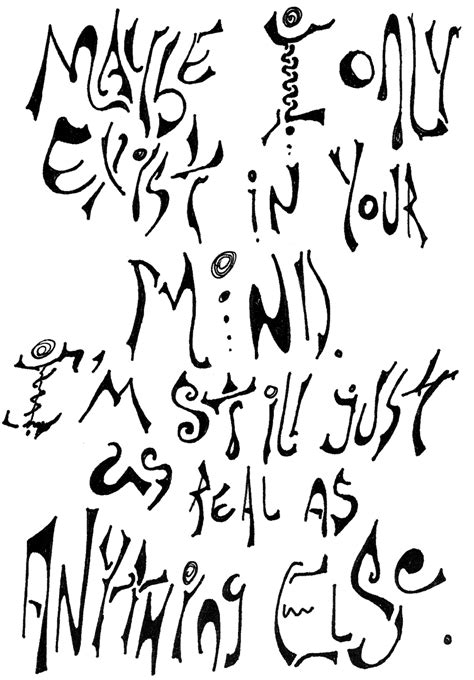 MAYBE I ONLY
EXIST IN YOUR
MIND.
I'M STILL JUST
AS REAL AS
ANYTHING ELSE.